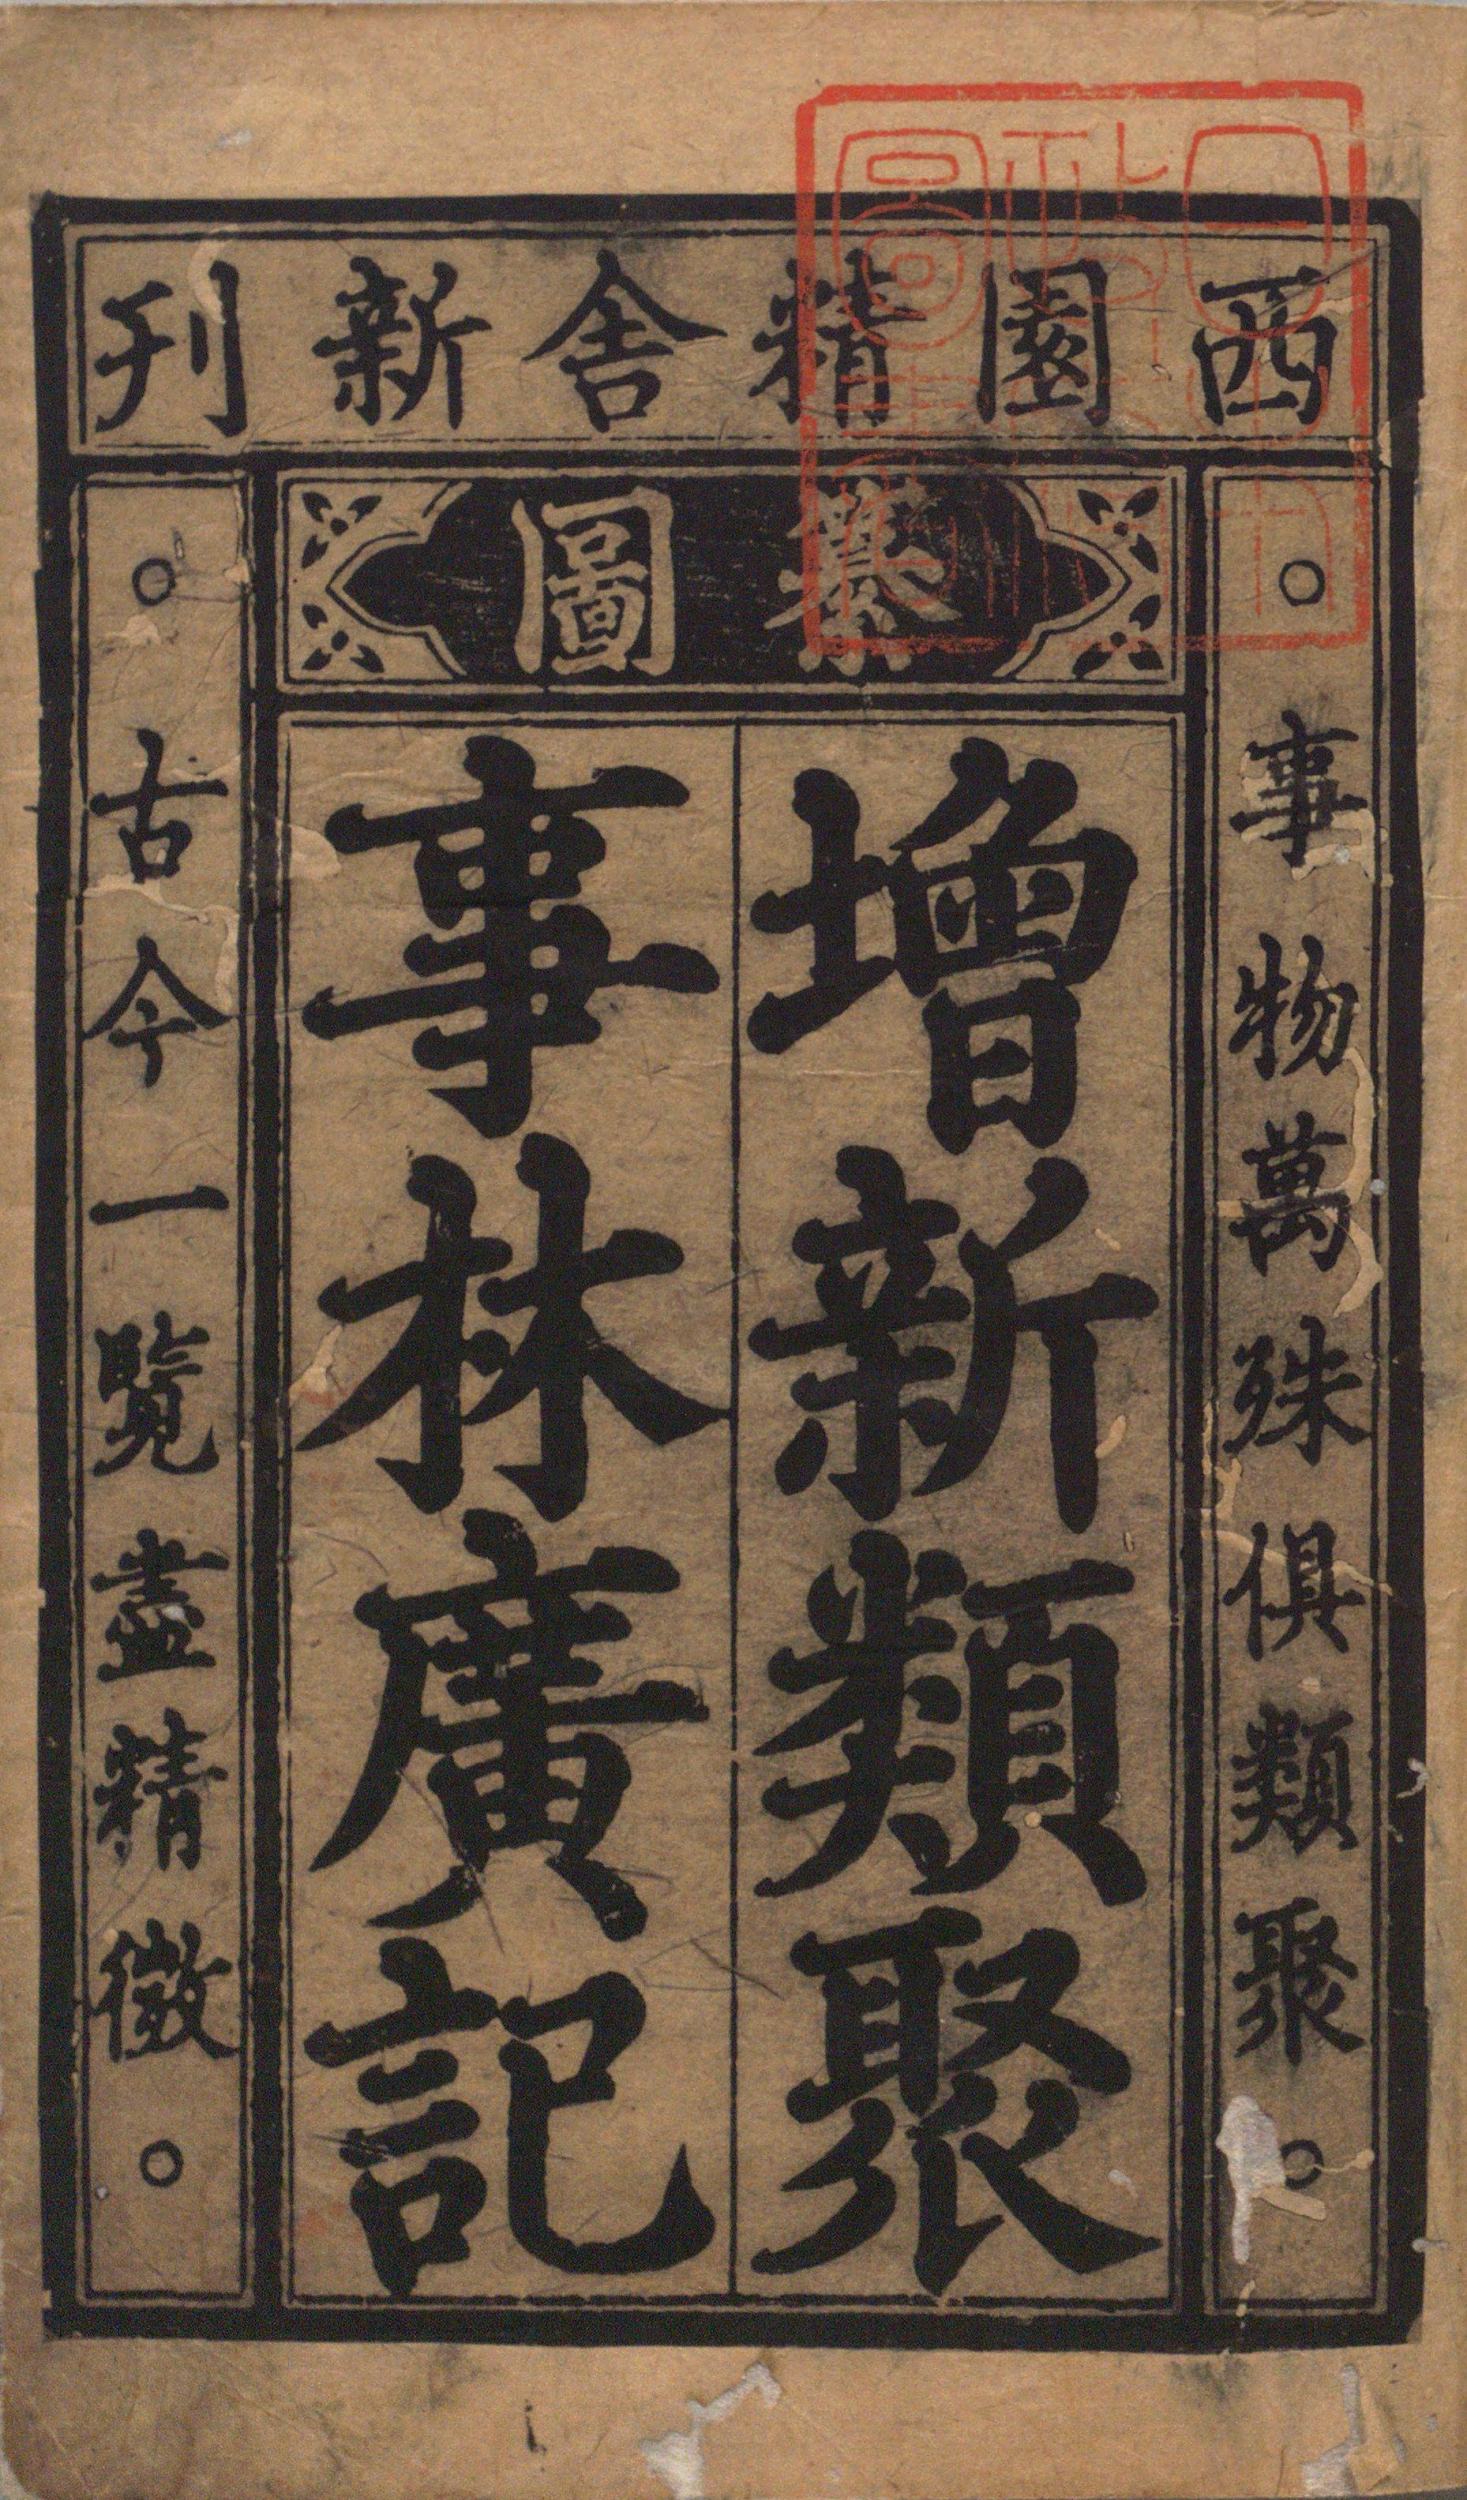 西園精舍新刊
纂圖
事物萬殊俱類聚
增新類聚
事林廣記
古今一覽盡精微